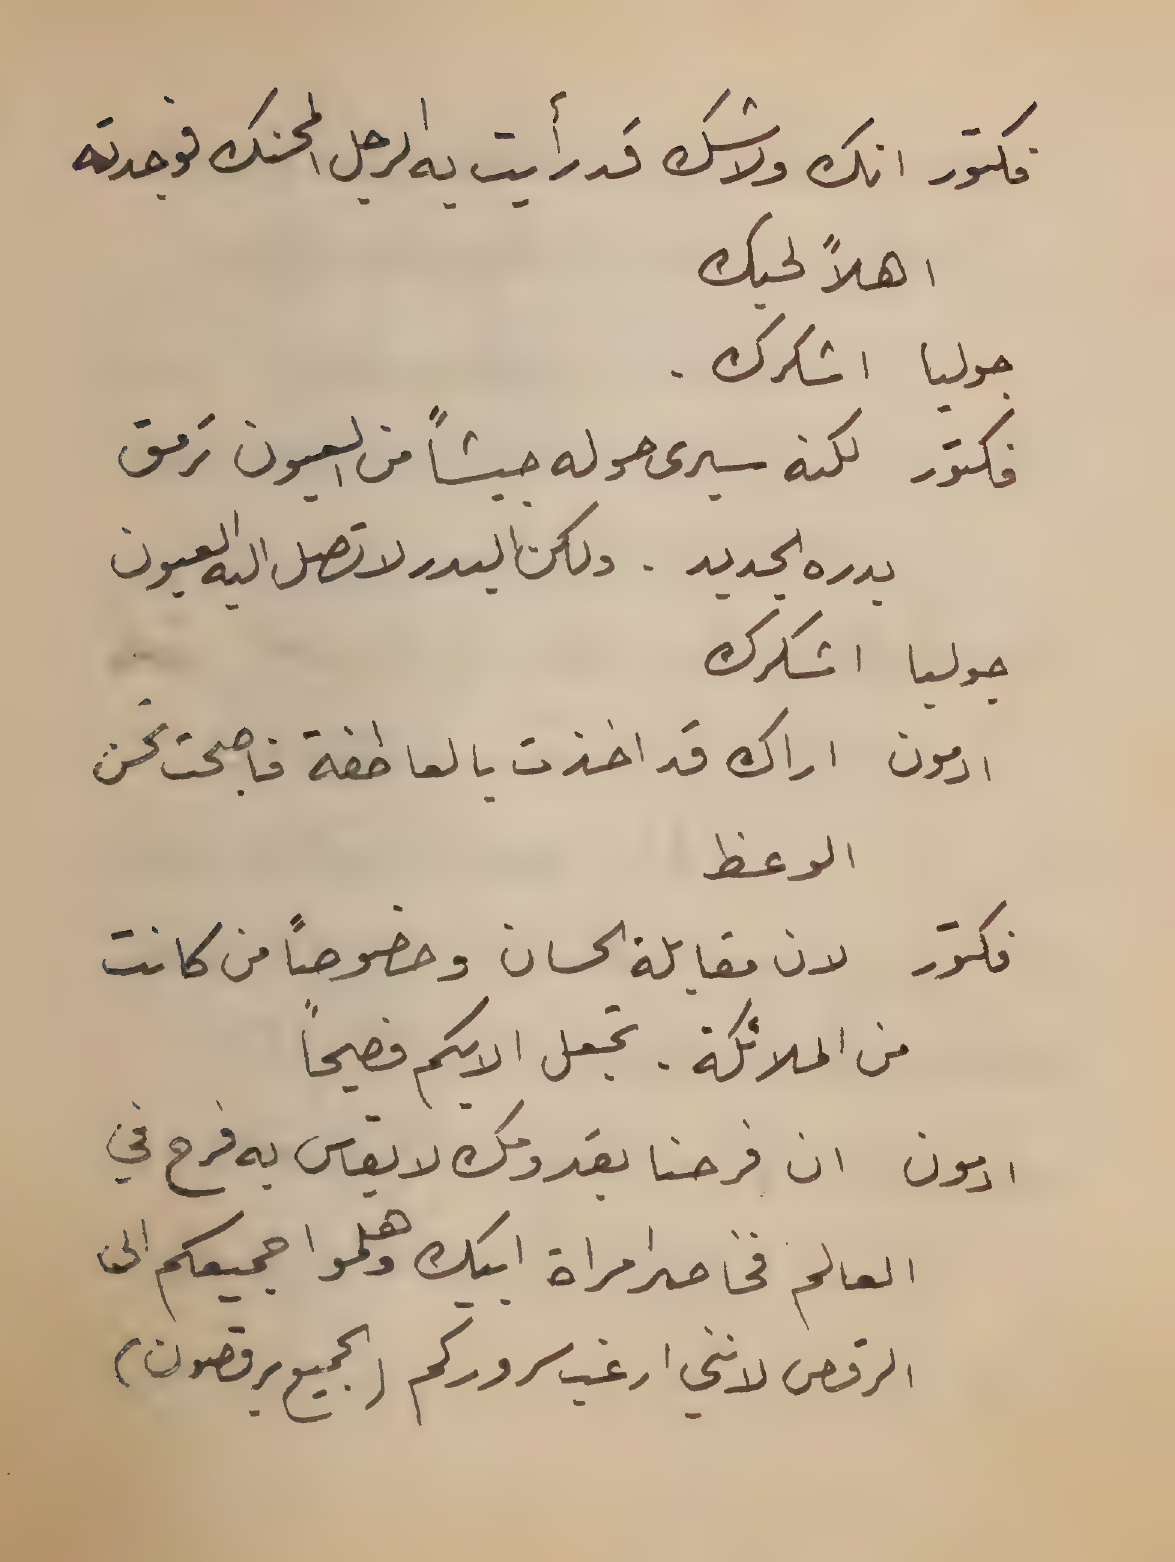 فكتور انك ولاشك قد رأيت به الرجل المحنك فوجدته
اهلاً لحبك
جوليا اشكرك .
فكتور لكنه سيرى حوله جيشاً من العيون ترمق
بدره الجديد . ولكن البدر لا تصل اليه العيون
جوليا اشكرك
ادمون اراك قد اخذت بالعاطفة فاصبحت تحسن
الوعظ
فكتور لان مقابلة الحسان وخصوصاً من كانت
من الملائكة . تجعل الابكم فصيحاً
ادمون ان فرحنا بقدومك لا يقاس به فرح في
العالم فخاصر امراة ابيك وهلموا جميعكم الى
الرقص لانني ارغب سروركم (الجميع يرقصون)